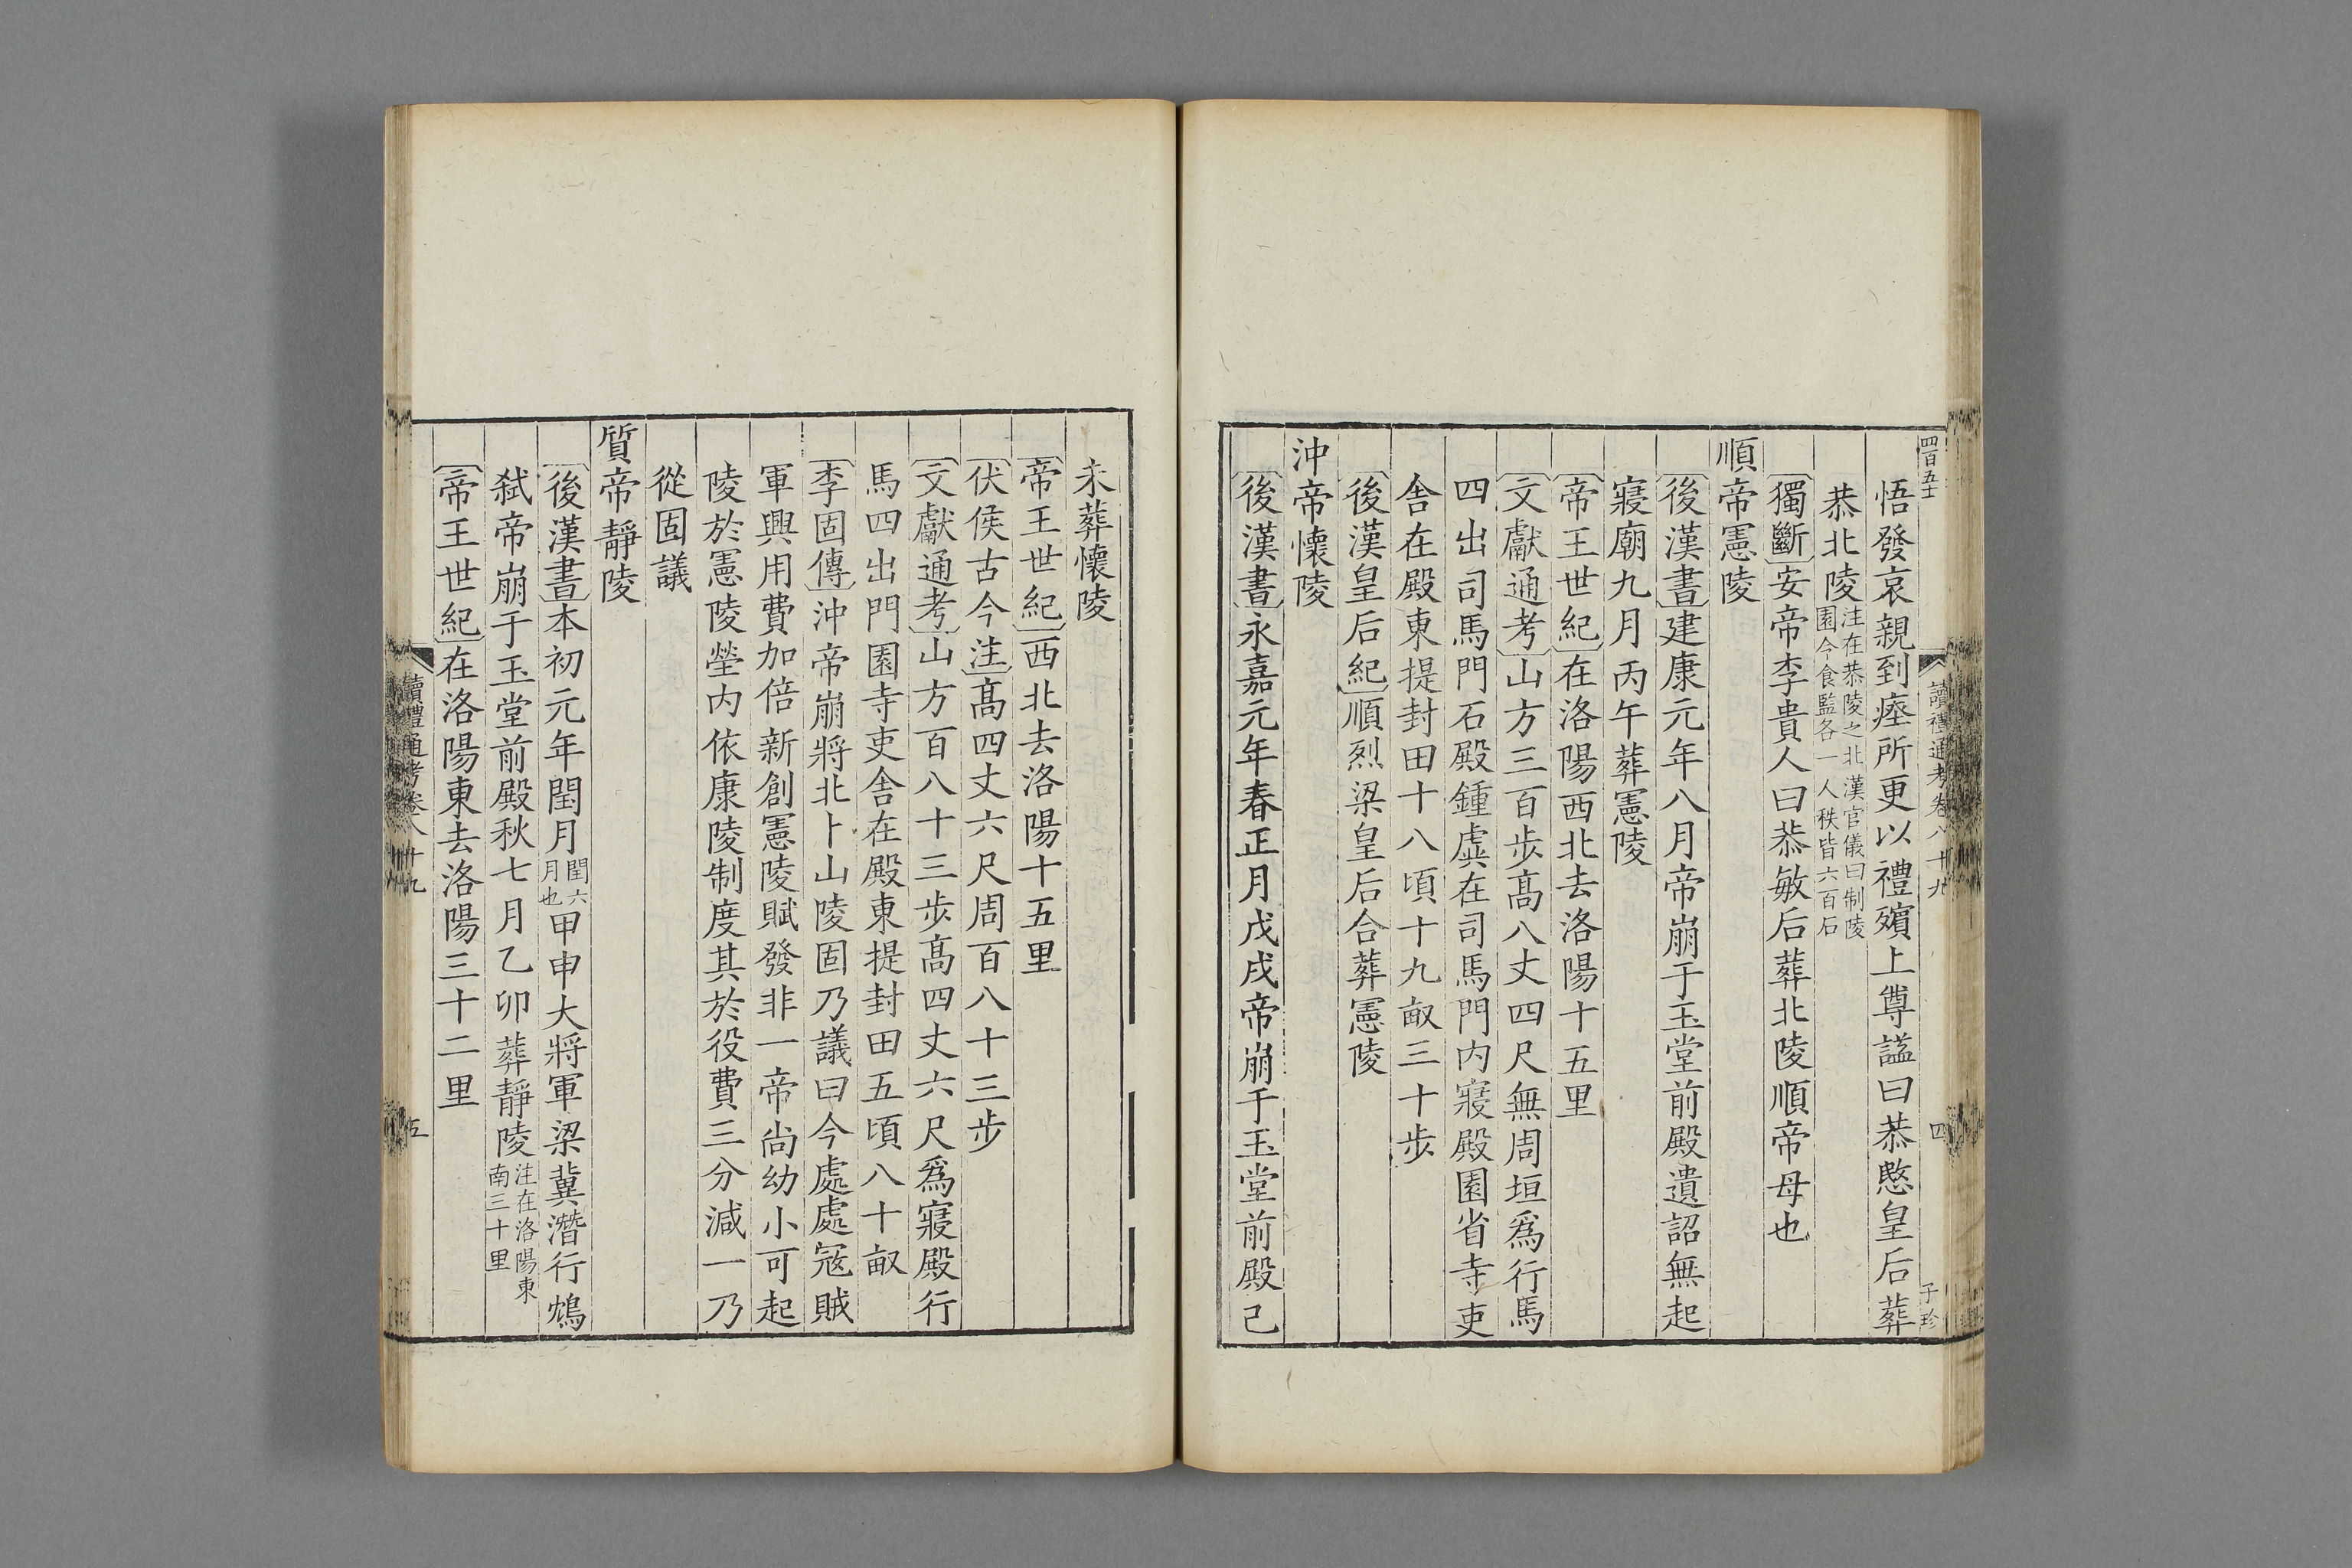 悟發哀親到瘞所更以禮殯上尊謚曰恭愍皇后葬
恭北陵注在恭陵之北漢官儀曰制陵園令食監各一人秩皆六百石
獨斷安帝李貴人曰恭敏后葬北陵順帝母也
順帝憲陵
後漢書建康元年八月帝崩于玉堂前殿遺詔無起
寢廟九月丙午葬憲陵
帝王世紀在洛陽西北去洛陽十五里
文獻通考山方三百步髙八丈四尺無周垣爲行馬
四出司馬門石殿鍾虡在司馬門内寢殿園省寺吏
舍在殿東提封田十八頃十九畝三十步
後漢皇后紀順烈梁皇后合葬憲陵
沖帝懷陵
後漢書永嘉元年春正月戊戌帝崩于玉堂前殿己
未葬懷陵
帝王世紀西北去洛陽十五里
伏侯古今注髙四丈六尺周百八十三步
文獻通考山方百八十三步髙四丈六尺爲寢殿行
馬四出門園寺吏舍在殿東提封田五頃八十畝
李固傳沖帝崩將北卜山陵固乃議曰今處處冦賊
軍興用費加倍新創憲陵賦發非一帝尚幼小可起
陵於憲陵塋内依康陵制度其於役費三分減一乃
從固議
質帝靜陵
後漢書本初元年閏月閏六月也甲申大將軍梁冀潛行鴆
弑帝崩于玉堂前殿秋七月乙卯葬靜陵注在洛陽東南三十里
帝王世紀在洛陽東去洛陽三十二里
讀禮通考卷八十九
四
子珍
讀禮通考卷八十九
五